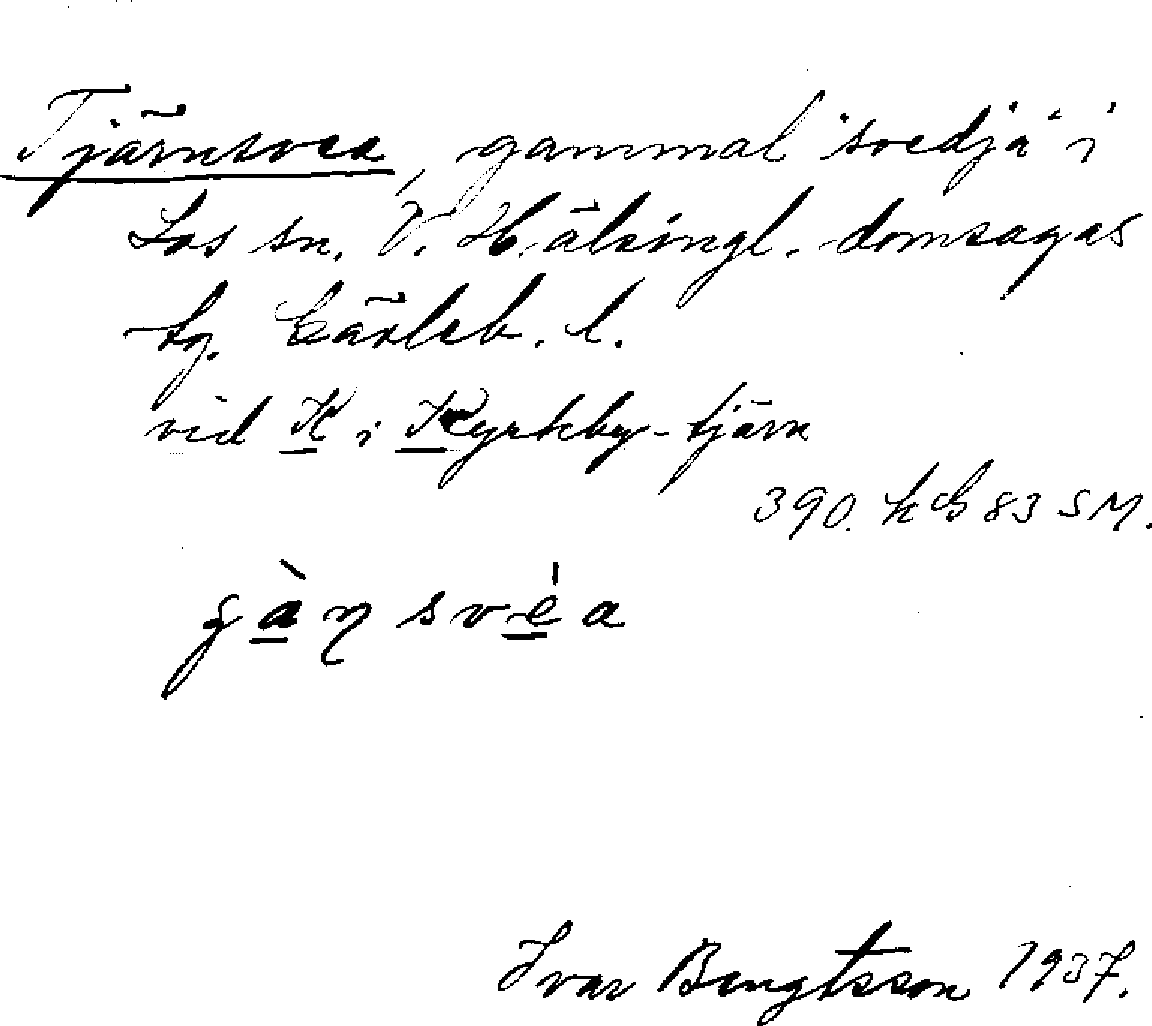 Tjärnsvea, gammal "svedja" i
Los sn. V. Hälsingl. domsagas
tg. Gävleb. l.
vid K i Kyrkby-tjärn
390. kG 83 SM.
svea
Ivar Bengtsson 1937.